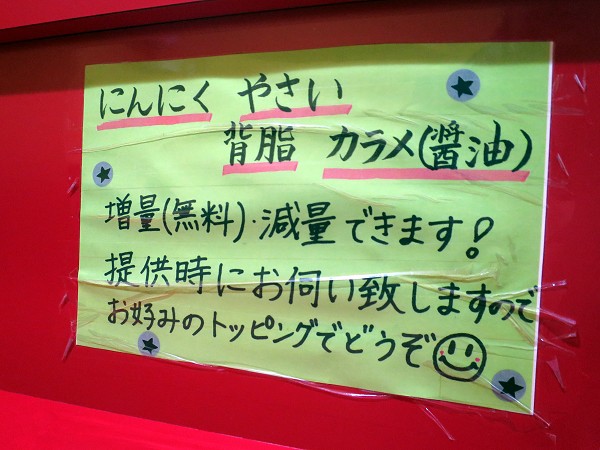 にんにく やさい
背脂 カラメ(醤油)
増量(無料)・減量できます!
提供時にお伺い致しますので
お好みのトッピングでどうぞ